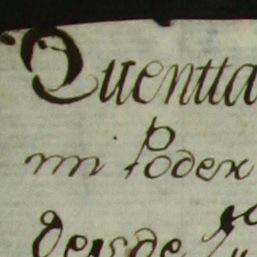 Quentta
mi Poder
desde